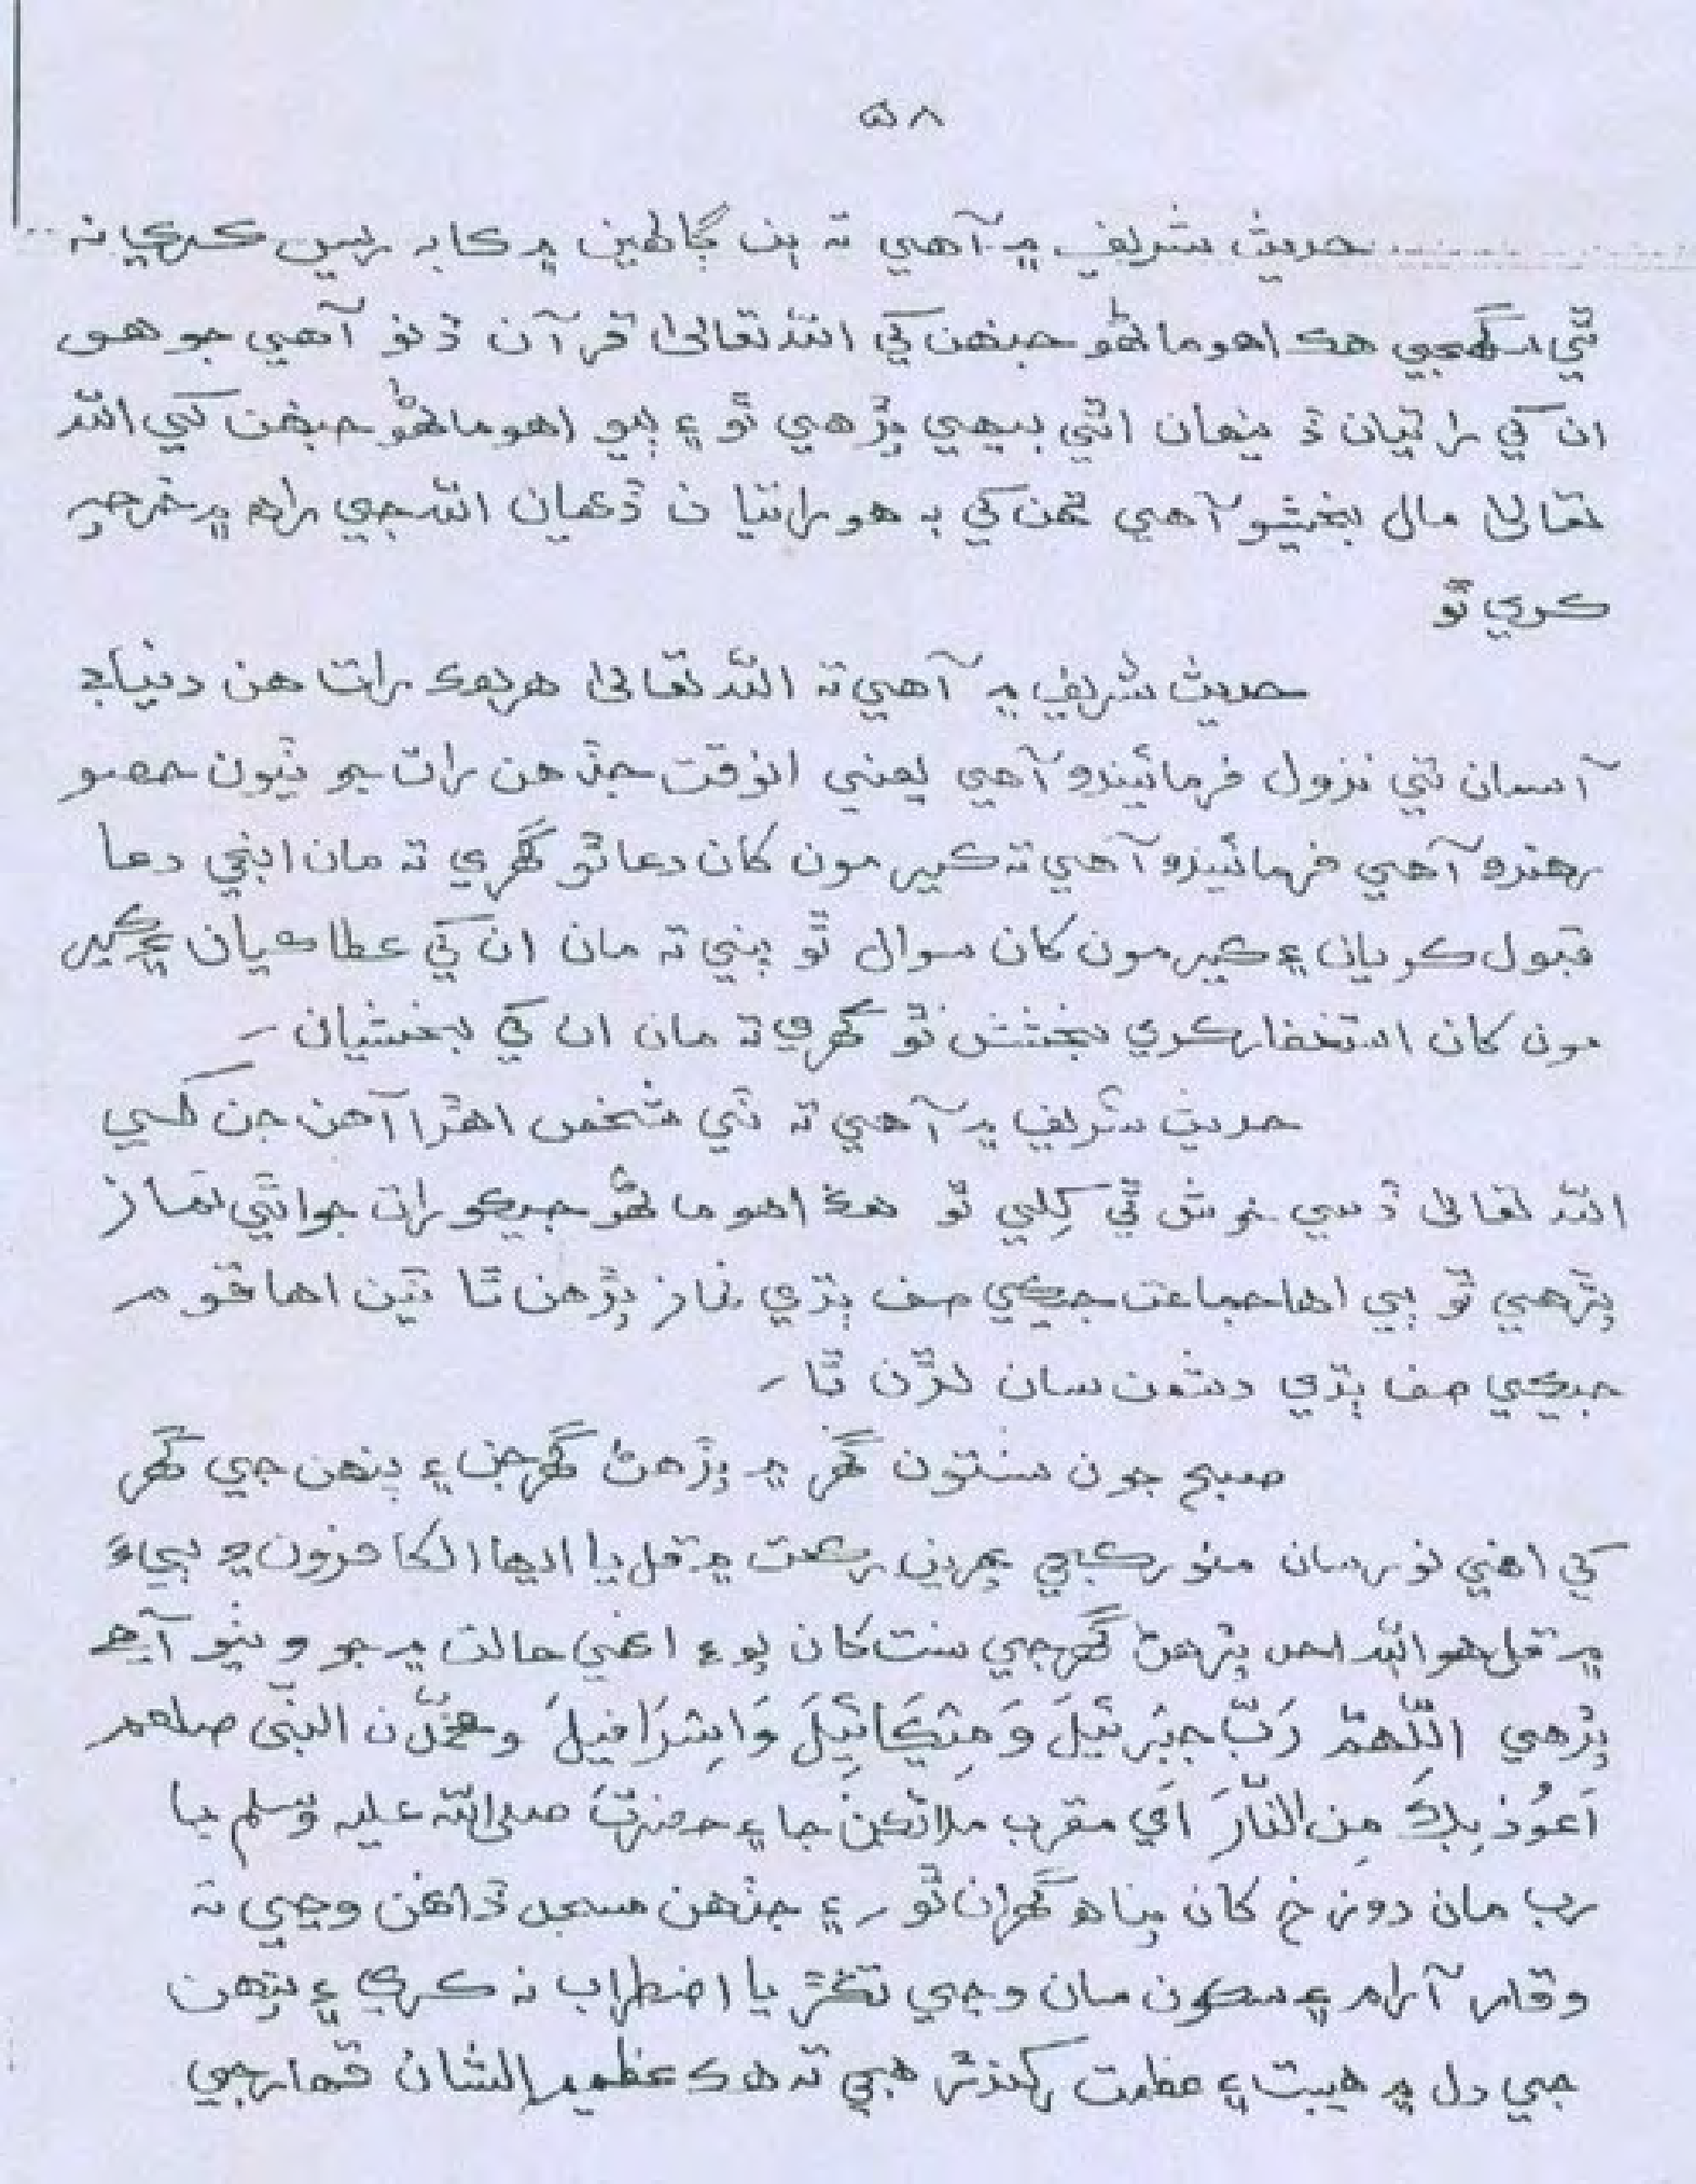 ۵۸
حديث شريف ۾ آهي ته ٻن ڳالهين ۾ ڪابہ ريس ڪرڻيا نہ
ٿي سگهجي هڪ اهو ماڻهو جنهن کي الله تعاليٰ قرآن ڏنو آهي جو هو
ان کي راتيان ڏينهان اٿي بيهي پڙهي ٿو ۽ ٻيو اهو ماڻهو جنهن کي الله
تعاليٰ مال بخشيو آهي تنهن کي به هو راتيان ڏينهان الله جي راه ۾ خرچ
ڪري ٿو
حديث شريف ۾ آهي ته الله تعاليٰ هريڪ رات هن دنيا جي
آسمان تي نزول فرمائيندو آهي يعني ان وقت جڏهن رات جو ٽيون حصو
رهندو آهي فرمائيندو آهي ته ڪير مون کان دعا ٿو گهري ته مان انجي دعا
قبول ڪريان ۽ ڪير مون کان سوال ٿو پني ته مان ان کي عطا ڪيان ۽ ڪير
مون کان استغفار ڪري بخشش ٿو گهري ته مان ان کي بخشيان ۔
حديث شريف ۾ آهي ته ٽي شخص اهڙا آهن جن کي
الله تعاليٰ ڏسي خوش ٿي کِلي ٿو هڪ اهو ماڻهو جيڪو رات جو اٿي نماز
پڙهي ٿو ٻي اها جماعت جيڪي صف ٻڌي نماز پڙهن ٿا ٽين اها قوم
جيڪي صف ٻڌي دشمن سان لڙن ٿا ۔
صبح جون سنتون گهر ۾ پڙهڻ گهرجن ۽ پنهنجي گهر
کي اهني نور سان منور ڪجي پهرين رڪعت ۾ قل يا ايها الكافرون ۽ ٻيءَ
۾ قل هو الله احد پڙهڻ گهرجي سنت کان پوءِ اهني حالت ۾ جو ويٺو آهي
پڙهي اللّٰهمّ رَبَّ جِبْرَئِيلَ وَ مِيْكَائِيْلَ وَاِسْرَافِيلَ و محمّدن النبّی صلعم
اَعُوْذُ بِكَ مِنَ النَّارِ اَي مقرب ملائڪن جا ۽ حضرت صلی الله عليہ وسلم جا
رب مان دوزخ کان پناھ گهران ٿو ۔ ۽ جڏهن مسجد ڏانهن وڃي ته
وقار آرام ۽ سڪون سان وڃي تڪڙ يا اضطراب نه ڪري ۽ پنهن
جي دل ۾ هيبت ۽ عظمت رکندڙ هجي ته هڪ عظيم الشان قهار جي